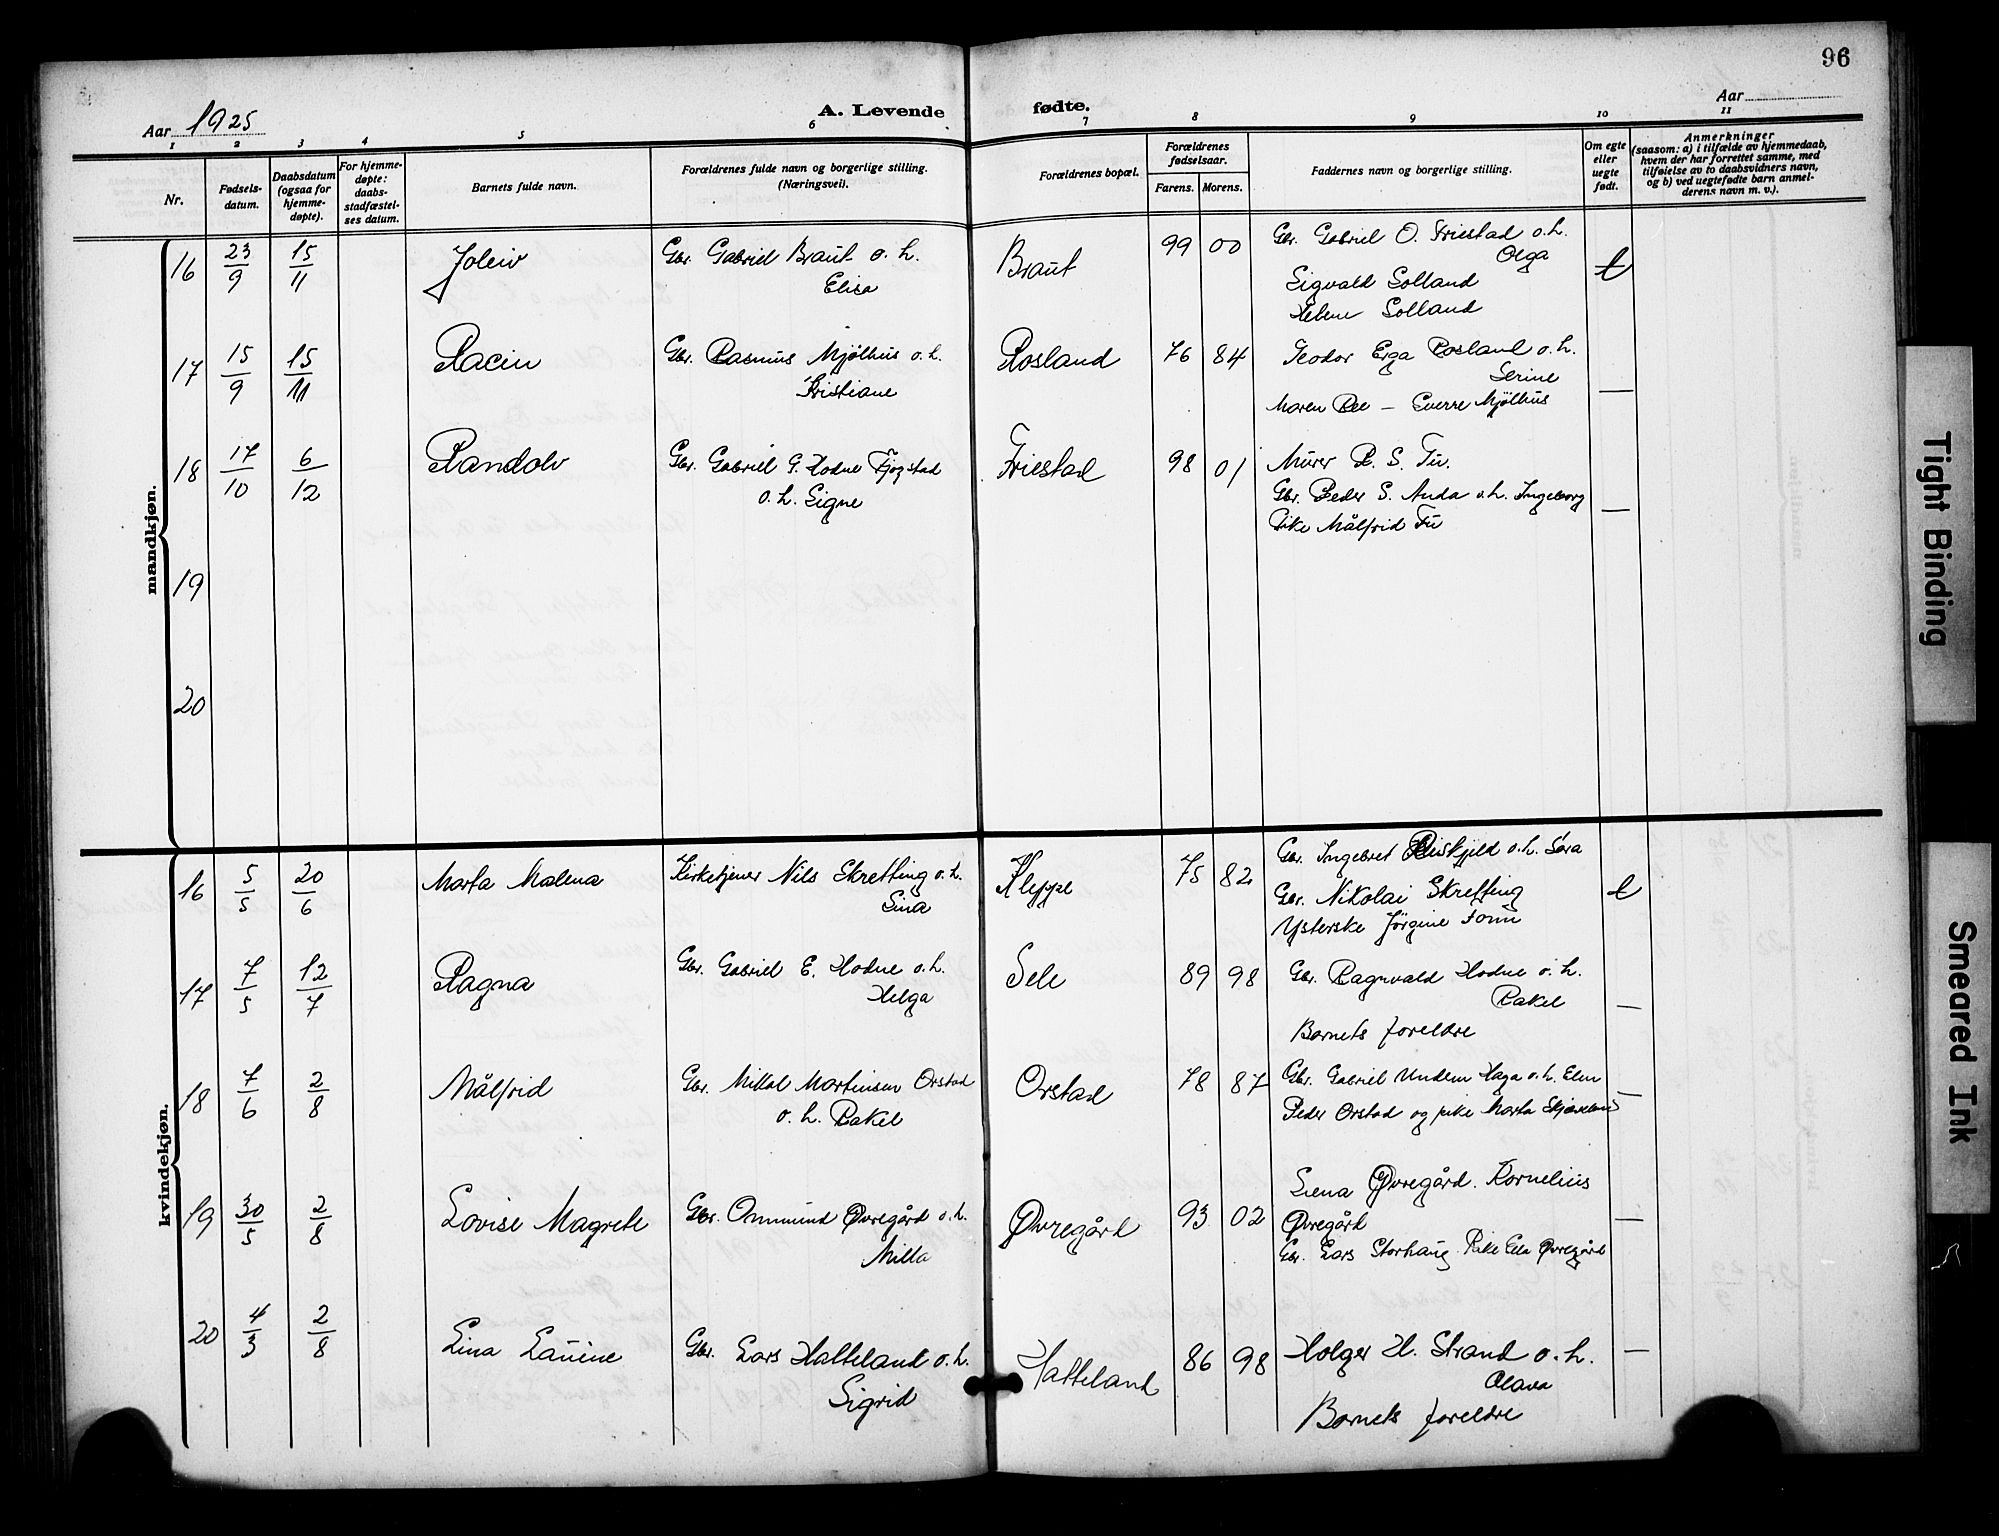 96
Aar 1925
A. Levende fødte.
Aar
1 2 3 4 5 6 7 8 9 10 11
Nr.
Fødsels-
datum.
Daabsdatum
(ogsaa for
hjemme-
døpte).
For hjemme-
døpte:
daabs-
stadfæstel-
ses datum.
Barnets fulde navn.
Forældrenes fulde navn og borgerlige stilling.
(Næringsvei).
Forældrenes bopæl.
Forældrenes
fødselsaar.
Farens. Morens.
Faddernes navn og borgerlige stilling.
Om egte
eller
uegte
født.
Anmerkninger
(saasom: a) i tilfælde av hjemmedaab,
hvem der har forrettet samme, med
tilføielse av to daabsvidners navn,
og b) ved uegtefødte barn anmel-
derens navn m. v.).
mandkjøn.
16 23/9 15/11 Joleiv Gbr. Gabriel Braut o. h. Braut 99 00 Gbr. Gabriel O. Friestad o.h.
Elisa Olga
Sigvald Solland
Helene Solland
17 15/9 15/11 Gbr. Rasmus Mjølhus o.h. Rosland 76 84 Teodor Erga Rosland o.h.
Kristiane Serine
Maren Ree — Sverre Mjølhus —
18 17/10 6/12 Randolv Gbr. Gabriel G. Hodne Fjogstad Friestad 98 01 Murer R. S. Tu.
o. h. Signe Gbr. Peder S. Anda o.h. Ingeborg —
Pike Målfrid Tu
19
20
kvindekjøn.
16 5/5 20/6 Marta Malena Kirketjener Nils Skretting o.h. Kleppe 75 82 Gbr. Ingebret Reiskjeld o.h. Sara
Sina Gbr. Nikolai Skretting
Ysterske Jørgine
17 7/5 12/7 Ragna Gbr. Gabriel E. Hodne o.h. Sele 89 98 Gbr. Ragnvald Hodne o. h.
Helga Rakel —
Barnets foreldre
18 7/6 2/8 Målfrid Gbr. Mikal Martinsen Orstad Orstad 78 87 Gbr. Gabriel Undem Haga o.h. Elen
o. h. Rakel Peder Orstad og pike Marta Skjæveland —
19 30/5 2/8 Lovise Magrete Gbr. Ommund Øvregård o.h. Øvregård 93 02 Lena Øvregård. Kornelius
Milla Øvregård —
Gbr. Lars Storhaug Pike Ela Øvregård
20 4/3 2/8 Lina Lauine Gbr. Lars Hatteland o.h. Hatteland 86 98 Holger H. Strand o. h. —
Sigrid Olava
Barnets foreldre
Tight Binding
Smeared Ink